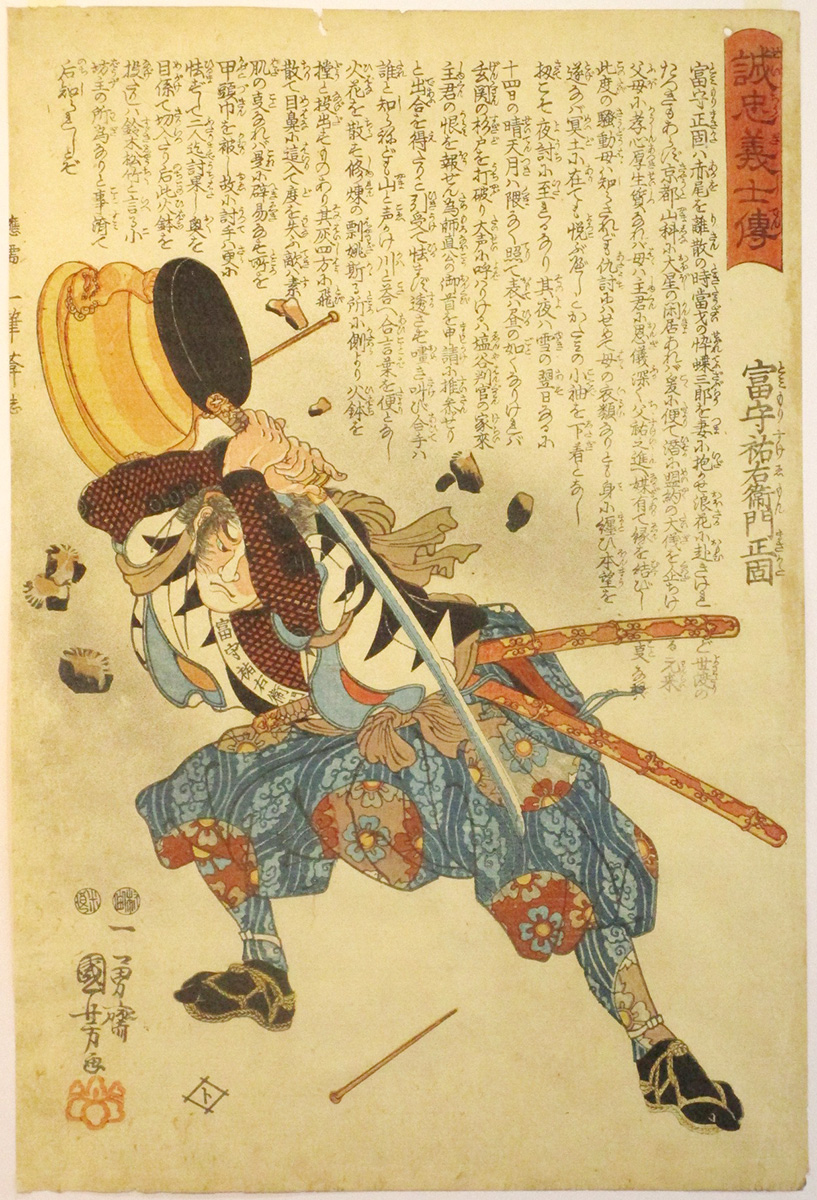 誠忠義士傳
富守祐右衛門正固
富守正固ハ赤尾を離散の時當歳の忰蝶三郎を妻に抱かせ浪花に赴きけれど世渡の
たつきもあらず京都山科に大星の閑居あれバ裏に便て潜に盟約の大儀を企ちける元来
父母に孝心厚生質なれバ母ハ主君に恩儀深く父祐之進へ媒有て縁を結びし
此度の騒動母ハ知らざれども仇討にハせめて母の衣類なりとも身に纏ひ本望を
遂なバ冥土に在ても悦ぶ應しとかさねの小袖を下着となし
扨こそ夜討に至りけるなり其夜ハ雪の翌日なるに
十四日の晴天月ハ隈なく照て表ハ昼の如くなりけれバ
玄関の杉戸を打破り大声に呼ハりけるハ塩谷判官の家来
主君の恨を報ぜん為師直公の御首を申請に推参せり
と出合を得たりと引受て怯まず透さず喚き叫びて合手ハ
誰と知らねども山と声かけ川と答ハ合言葉を便となし
火花を散せし修煉の剽姚斯る所に側より火鉢を
撞と投出せものあり其灰四方に飛
散て目鼻に這入て度を失ふ敵ハ素
肌の夏なれバ裏に辟易なせし所を
甲頭巾を被る故に討手ハ更に
怯ずして二人迄討果し奥を
目係て切入たり后此火鉢を
投しハ鈴木松竹と言る小
坊主の所為なりと事済て
后知られしとぞ
應需 一筆菴誌
富守祐右衛門
一勇齋
國芳画
ト